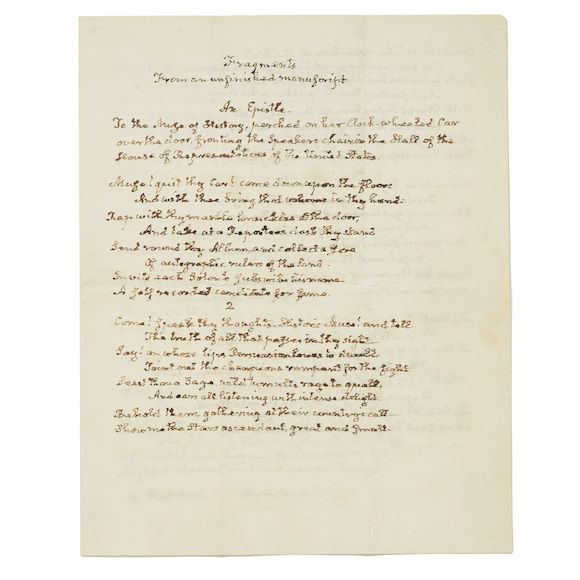 Fragments
From an unfinished manuscript
An Epistle.
To the Muse of History, perched on her Clock-wheeled Car
over the door, fronting the Speakers chair in the Hall of the
House of Representatives of the United States.
Muse! quit thy Car! come down upon the floor:
And with thee bring that volume in thy hand:
Rap with thy marble knuckles at the door,
And take at a Reporters desk thy stand
Send round thy Album and collect a store
Of autographic rulers of the land
Invite each Solon to subscribe his name
A self recorded candidate for fame.
2
Come! speak thy thoughts Historic Muse! and tell
The truth of all that passes in thy sight
Say! on whose lips Persuasion loves to dwell
out the rampant for the fight
thou a Sage wild tumults rage to quell,
And ears all listening with intense delight
Behold them, gathering at their country's call
Show me the Stars ascendant, great and small.